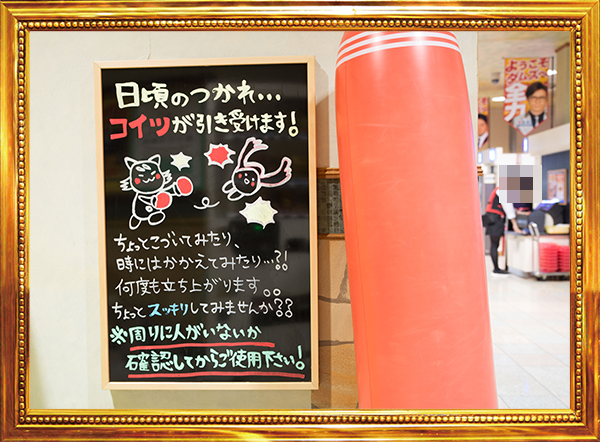 日頃のつかれ…
コイツが引き受けます!
ちょっとこづいてみたり、
時にはかかえてみたり…?!
何度も立ち上がります。。
ちょっとスッキリしてみませんか??
※周りに人がいないか
確認してからご使用下さい!
ようこそ
ダムズへ
全力